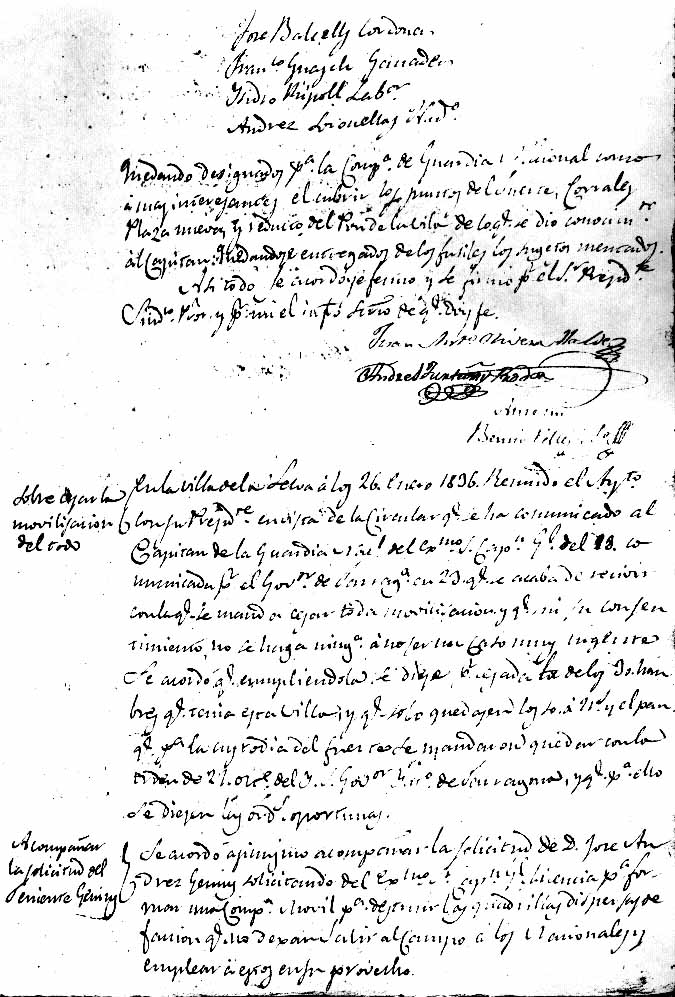 Jose Balcells Cordonar
Fran.co Guasch Ganader
Isidro Ripoll Labor
Andres
Quedando designados p.a la Comp.a de Guardia Nacional como
á mas interesantes el cubrir los puntos del fuerte, Corrales
Plaza nueva, y reducto del de la Villa de lo q.e se dio conocim.to
al Capitan: quedandose entregados de los fusiles los sugetos mencados.
Asi todo se acordo y se firmó p.r el S.r Presid.te
Sind.co Pror. y p.r mi el infto Scrro de q.e doy fe.
Juan
Andres
Ante mi
Sobre cejar la
movilisacion
del todo
En la villa de la Selva á los 26. Enero 1836. Reunido el Ay.to
con su Presid.te en vista de la Circular q.e se ha comunicado al
Capitan de la Guardia Nac.l del Ex.mo S. Cap.n G.l del 18. co
municada p.r el Gov.or de Tarrag.a en 23. q.e se acaba de recivir
con la q.e se manda cejar toda movilisacion y q.e sin su consen
timiento, no se haga ning.a á no ser un caso muy urgente
Se acordó q.e cumpliendola se diese p.r cejada la de los 30. hom
bres q.e tenia esta Villa, y q.e solo quedasen los 10. á y el pan
q.e p.a la custodia del fuerte se mandaron quedar con la
orden de 21. del S. Gov.or de Tarragona, y q.e p.a ello
se diesen las ord.s oportunas.
Acompañar
la solicitud del
Teniente Geniny
Se acordó asimismo acompañar la solicitud de D. Jose An
drez Geniny solicitando del Ex.mo S. Cap.n G.l licencia p.a for
mar una Comp.a Movil p.a destruir las quadrillas dispersas de
facion q.e no dexan salir al Campo á los Nacionales y
emplear á esos en su provecho.